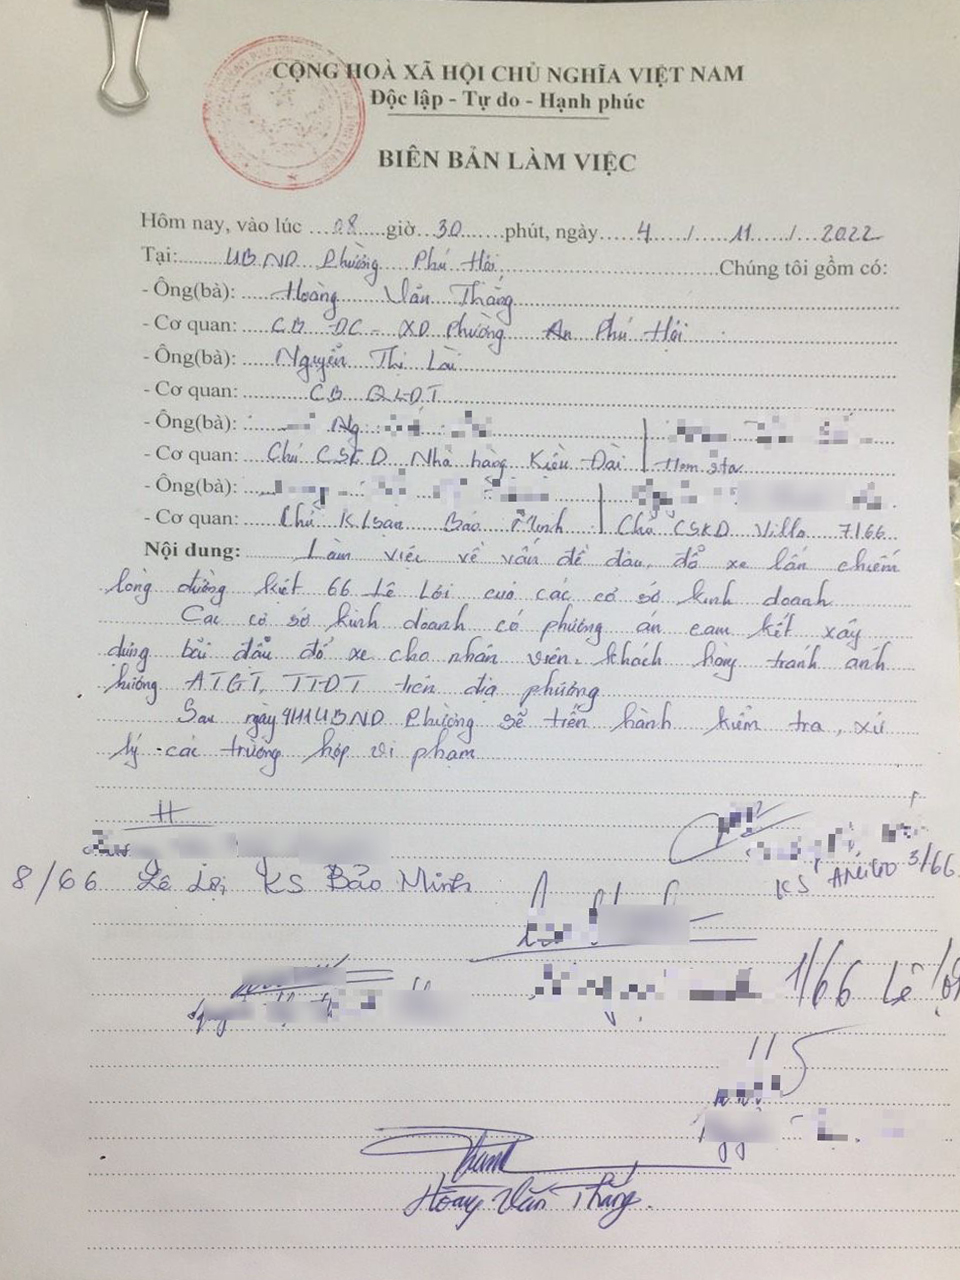 CỘNG HOÀ XÃ HỘI CHỦ NGHĨA VIỆT NAM
Độc lập - Tự do - Hạnh phúc
BIÊN BẢN LÀM VIỆC
Hôm nay, vào lúc 08 giờ 30 phút, ngày 4 / 11 / 2022
Tại: UBND Phường Phú Hội Chúng tôi gồm có:
- Ông(bà): Hoàng Văn Thắng
- Cơ quan: CB ĐC - XD Phường Phú Hội
- Ông(bà): Nguyễn Thị Lài
- Cơ quan: CB QLĐT
- Ông(bà): Ng
- Cơ quan: Chủ CSKD Nhà hàng Kiều Đài Homsta
- Ông(bà):
- Cơ quan: Chủ K/sạn Bảo Minh Chủ CSKD Villa 7/66
Nội dung: Làm việc về vấn đề đậu, đổ xe lấn chiếm
lòng đường kiệt 66 Lê Lợi của các cơ sở kinh doanh
Các cơ sở kinh doanh có phương án cam kết xây
dựng bãi đậu đổ xe cho nhân viên, khách hàng tránh ảnh
hưởng ATGT, TTĐT trên địa phương
Sau ngày 9/11 UBND Phường sẽ tiến hành kiểm tra, xử
lý các trường hợp vi phạm
8/66 Lê Lợi KS Bảo Minh
KS 3/66
1/66 Lê Lợi
Hoàng Văn Thắng